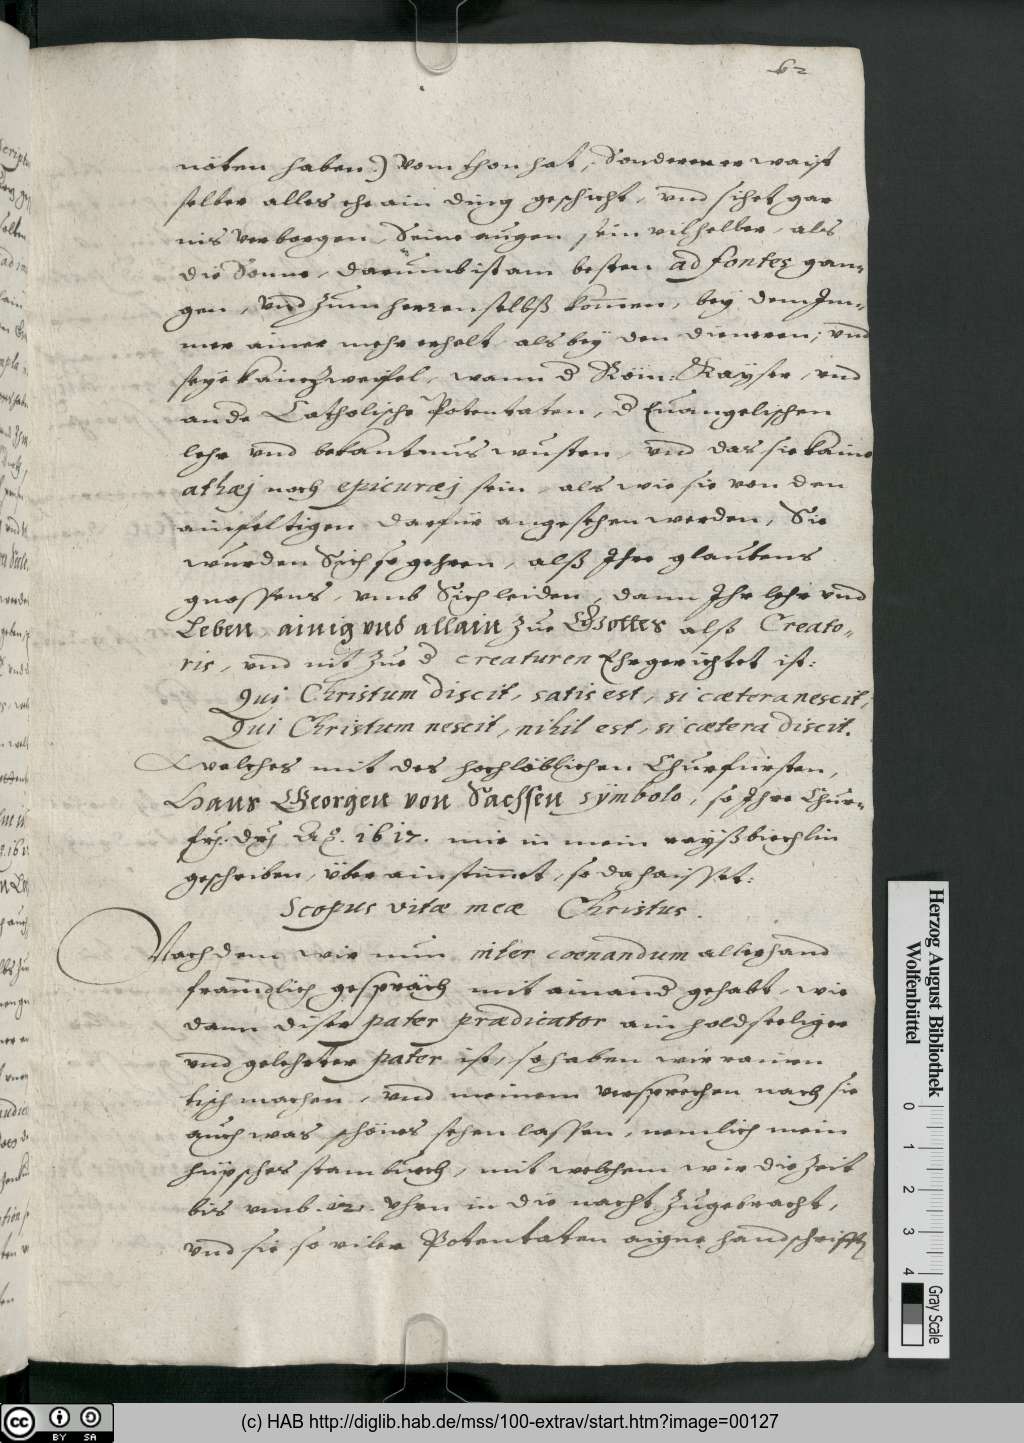 62
nöten haben) vom thon hat, Sonderen er waist
selber alles ehe ain ding geschicht, vnd sihet gar
nis verborgen, Seine augen sein vil heller, als
die Sonne, darumb ist am besten ad fontes gan-
gen, vnd zum herren selbß komen, bey dem Im-
mer ainer mehr erholt als bey den dieneren; vnd
seye kain zweifel, wann d Röm: Kayser, vnd
ande Catholische Potentaten, d Euangelischen
lehr vnd bekantnus wusten, vnd das sie kaine
athæj noch epicuræj sein, als wie sie von den
ainfeltigen darfür angesehen werden, Sie
wurden Sich so gehren, alß Ihre glaubens
gnossens, vmb Sich leiden, dann Ihr lehr vnd
Leben ainig vnd allain zue Gottes alß Creato-
ris, vnd nit zue d creaturen Ehr gerichtet ist:
Qui Christum discit, satis est, si cætera nescit,
Qui Christum nescit, nihil est, si cætera discit.
Welches mit des hochlöblichen Churfürsten,
Hans Georgen von Sachsen sÿmbolo, so Ihre Chur-
frl. Dhl Aō. 1617. mir in mein rayßbiechlin
geschriben, überainstimmet, so da haisset:
Scopus vitæ meæ Christus.
Nach dem wir nun inter coenandum allerhand
fraindlich gespräch mit ainand gehabt, wie
dann diser pater prædicator ain holdseeliger
vnd gelehrter pater ist, so haben wir ramen
tisch machen, vnd meinem versprechen nach sie
auch was schönes sehen lassen, nemlich mein
hüpsches stambuech, mit welchem wir die Zeit
bis vmb .12. vhrn in die nacht zugebracht,
vnd sie so viler Potentaten aigne handschrifft
Herzog August Bibliothek
Wolfenbüttel
0 1 2 3 4
Gray Scale
cc BY SA
(c) HAB http://diglib.hab.de/mss/100-extrav/start.htm?image=00127